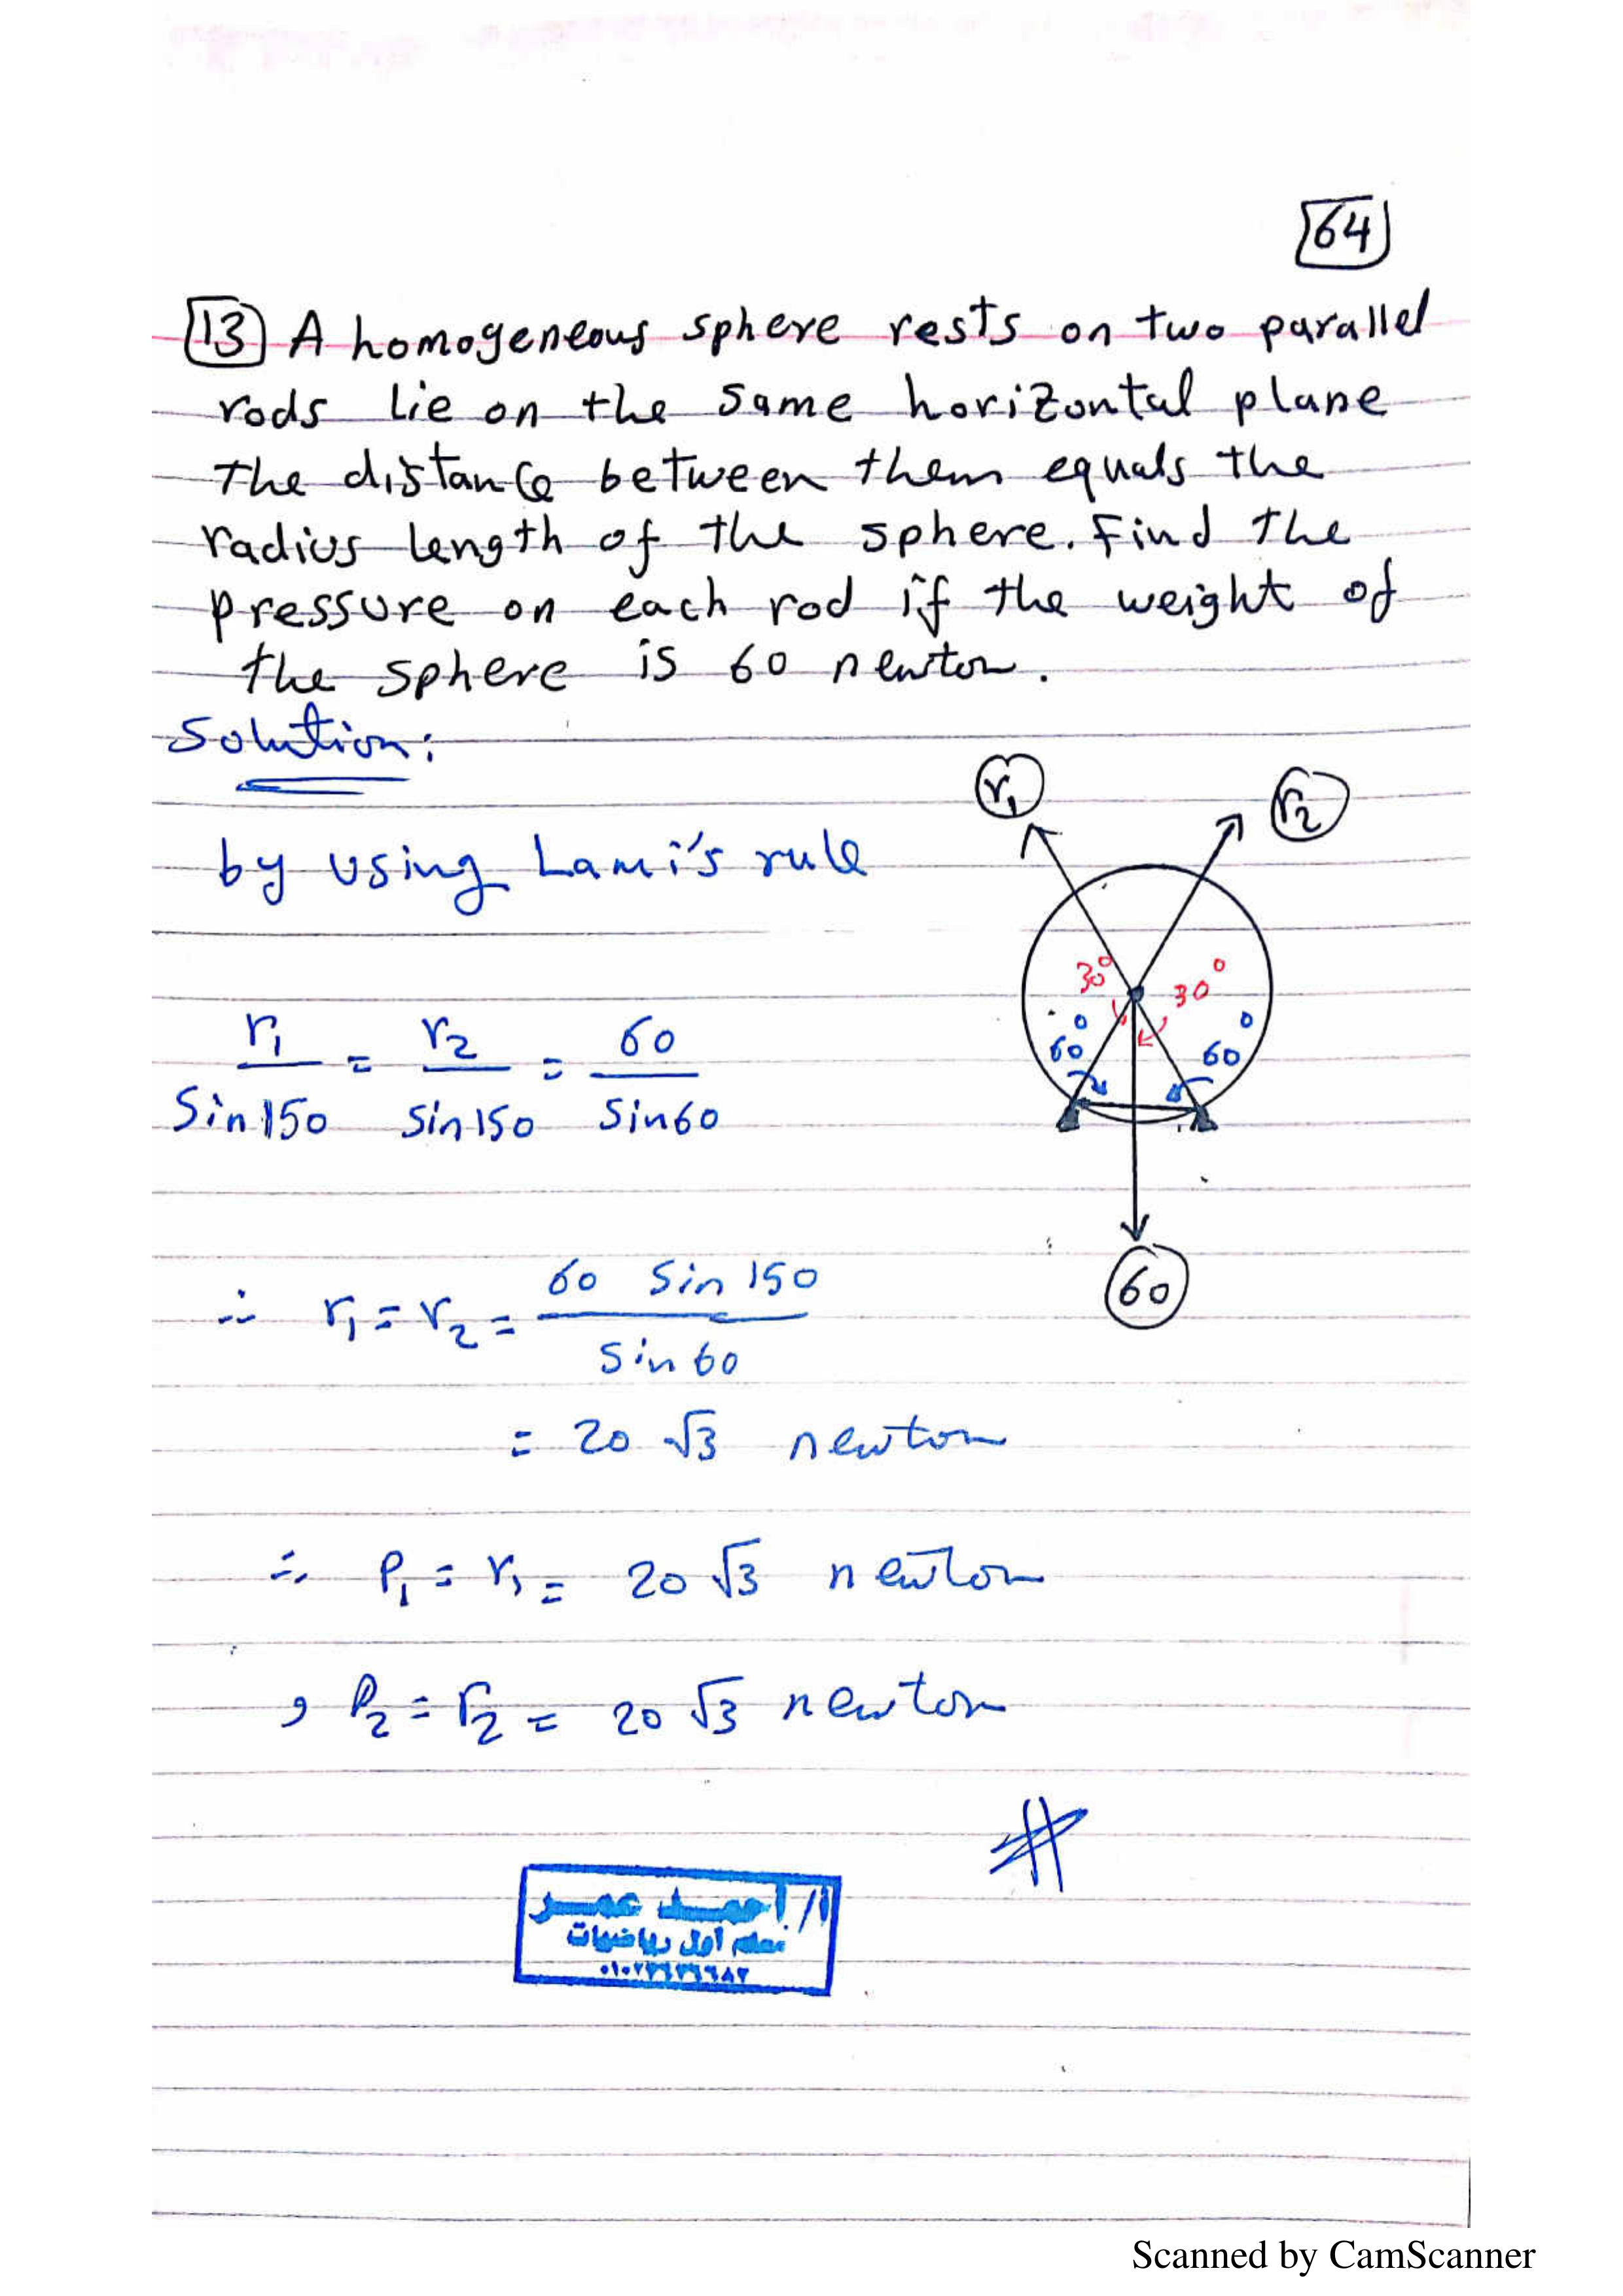 64
13 A homogeneous sphere rests on two parallel
rods lie on the same horizontal plane
the distance between them equals the
radius length of the sphere. Find the
pressure on each rod if the weight of
the sphere is 60 newton.
Solution:
by using Lami's rule
r₁ r₂
30° 30°
60° 60°
60
r₁/Sin150 = r₂/Sin150 = 60/Sin60
∴ r₁ = r₂ = 60 Sin 150 / Sin 60
= 20 √3 newton
∴ P₁ = r₁ = 20 √3 newton
, P₂ = r₂ = 20 √3 newton
#
أ/ أحمد عمر
معلم أول رياضيات
Scanned by CamScanner